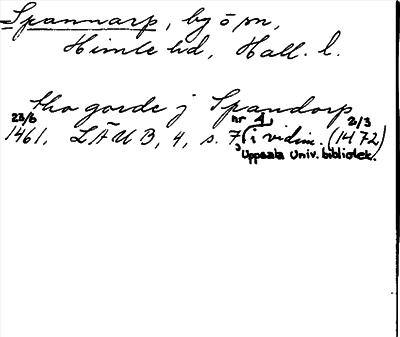 Spannarp, by ö sn,
Himle hd, Hall. l.
tho gorde j Spandorp
23/6 nr 1 2/3
1461, LÄUB, 4, s. 7, (i vidim. (1472)
Uppsala Univ. bibliotek.